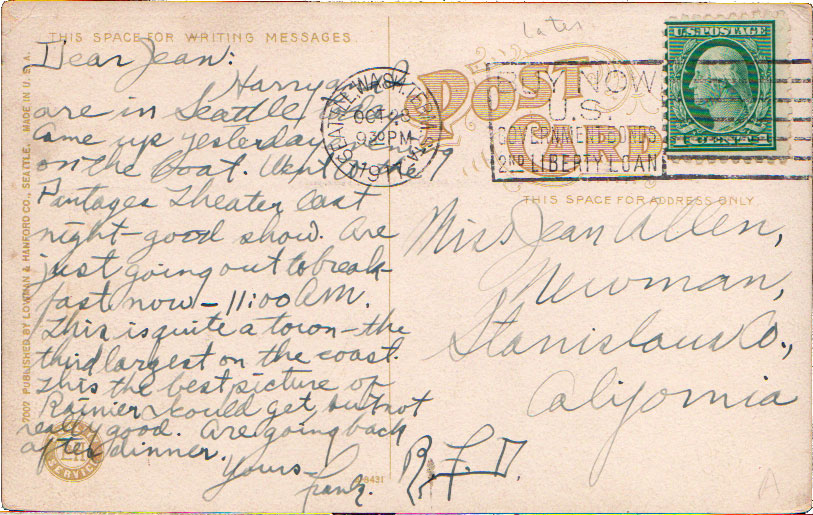 THIS SPACE FOR WRITING MESSAGES.
Dear Jean:
Harry and I
are in Seattle.
came up yesterday
on the boat. Went to the
Pantages Theater last
night - good show. Are
just going out to break-
fast now - 11:00 AM.
This is quite a town - the
third largest on the coast.
This the best picture of
Rainier I could get, but not
really good. Are going back
after dinner.
Yours -
Frank.
2002 PUBLISHED BY LOWMAN & HANFORD CO., SEATTLE. MADE IN U.S.A.
SERVICE
Later
POST
CARD
SEATTLE, WASH.
OCT 28
930 PM
1917
BUY NOW
U.S.
GOVERNMENT BONDS
2ND LIBERTY LOAN
U.S. POSTAGE
THIS SPACE FOR ADDRESS ONLY.
Miss Jean Allen,
Newman,
Stanislaus Co.,
California
R.F.D.
A